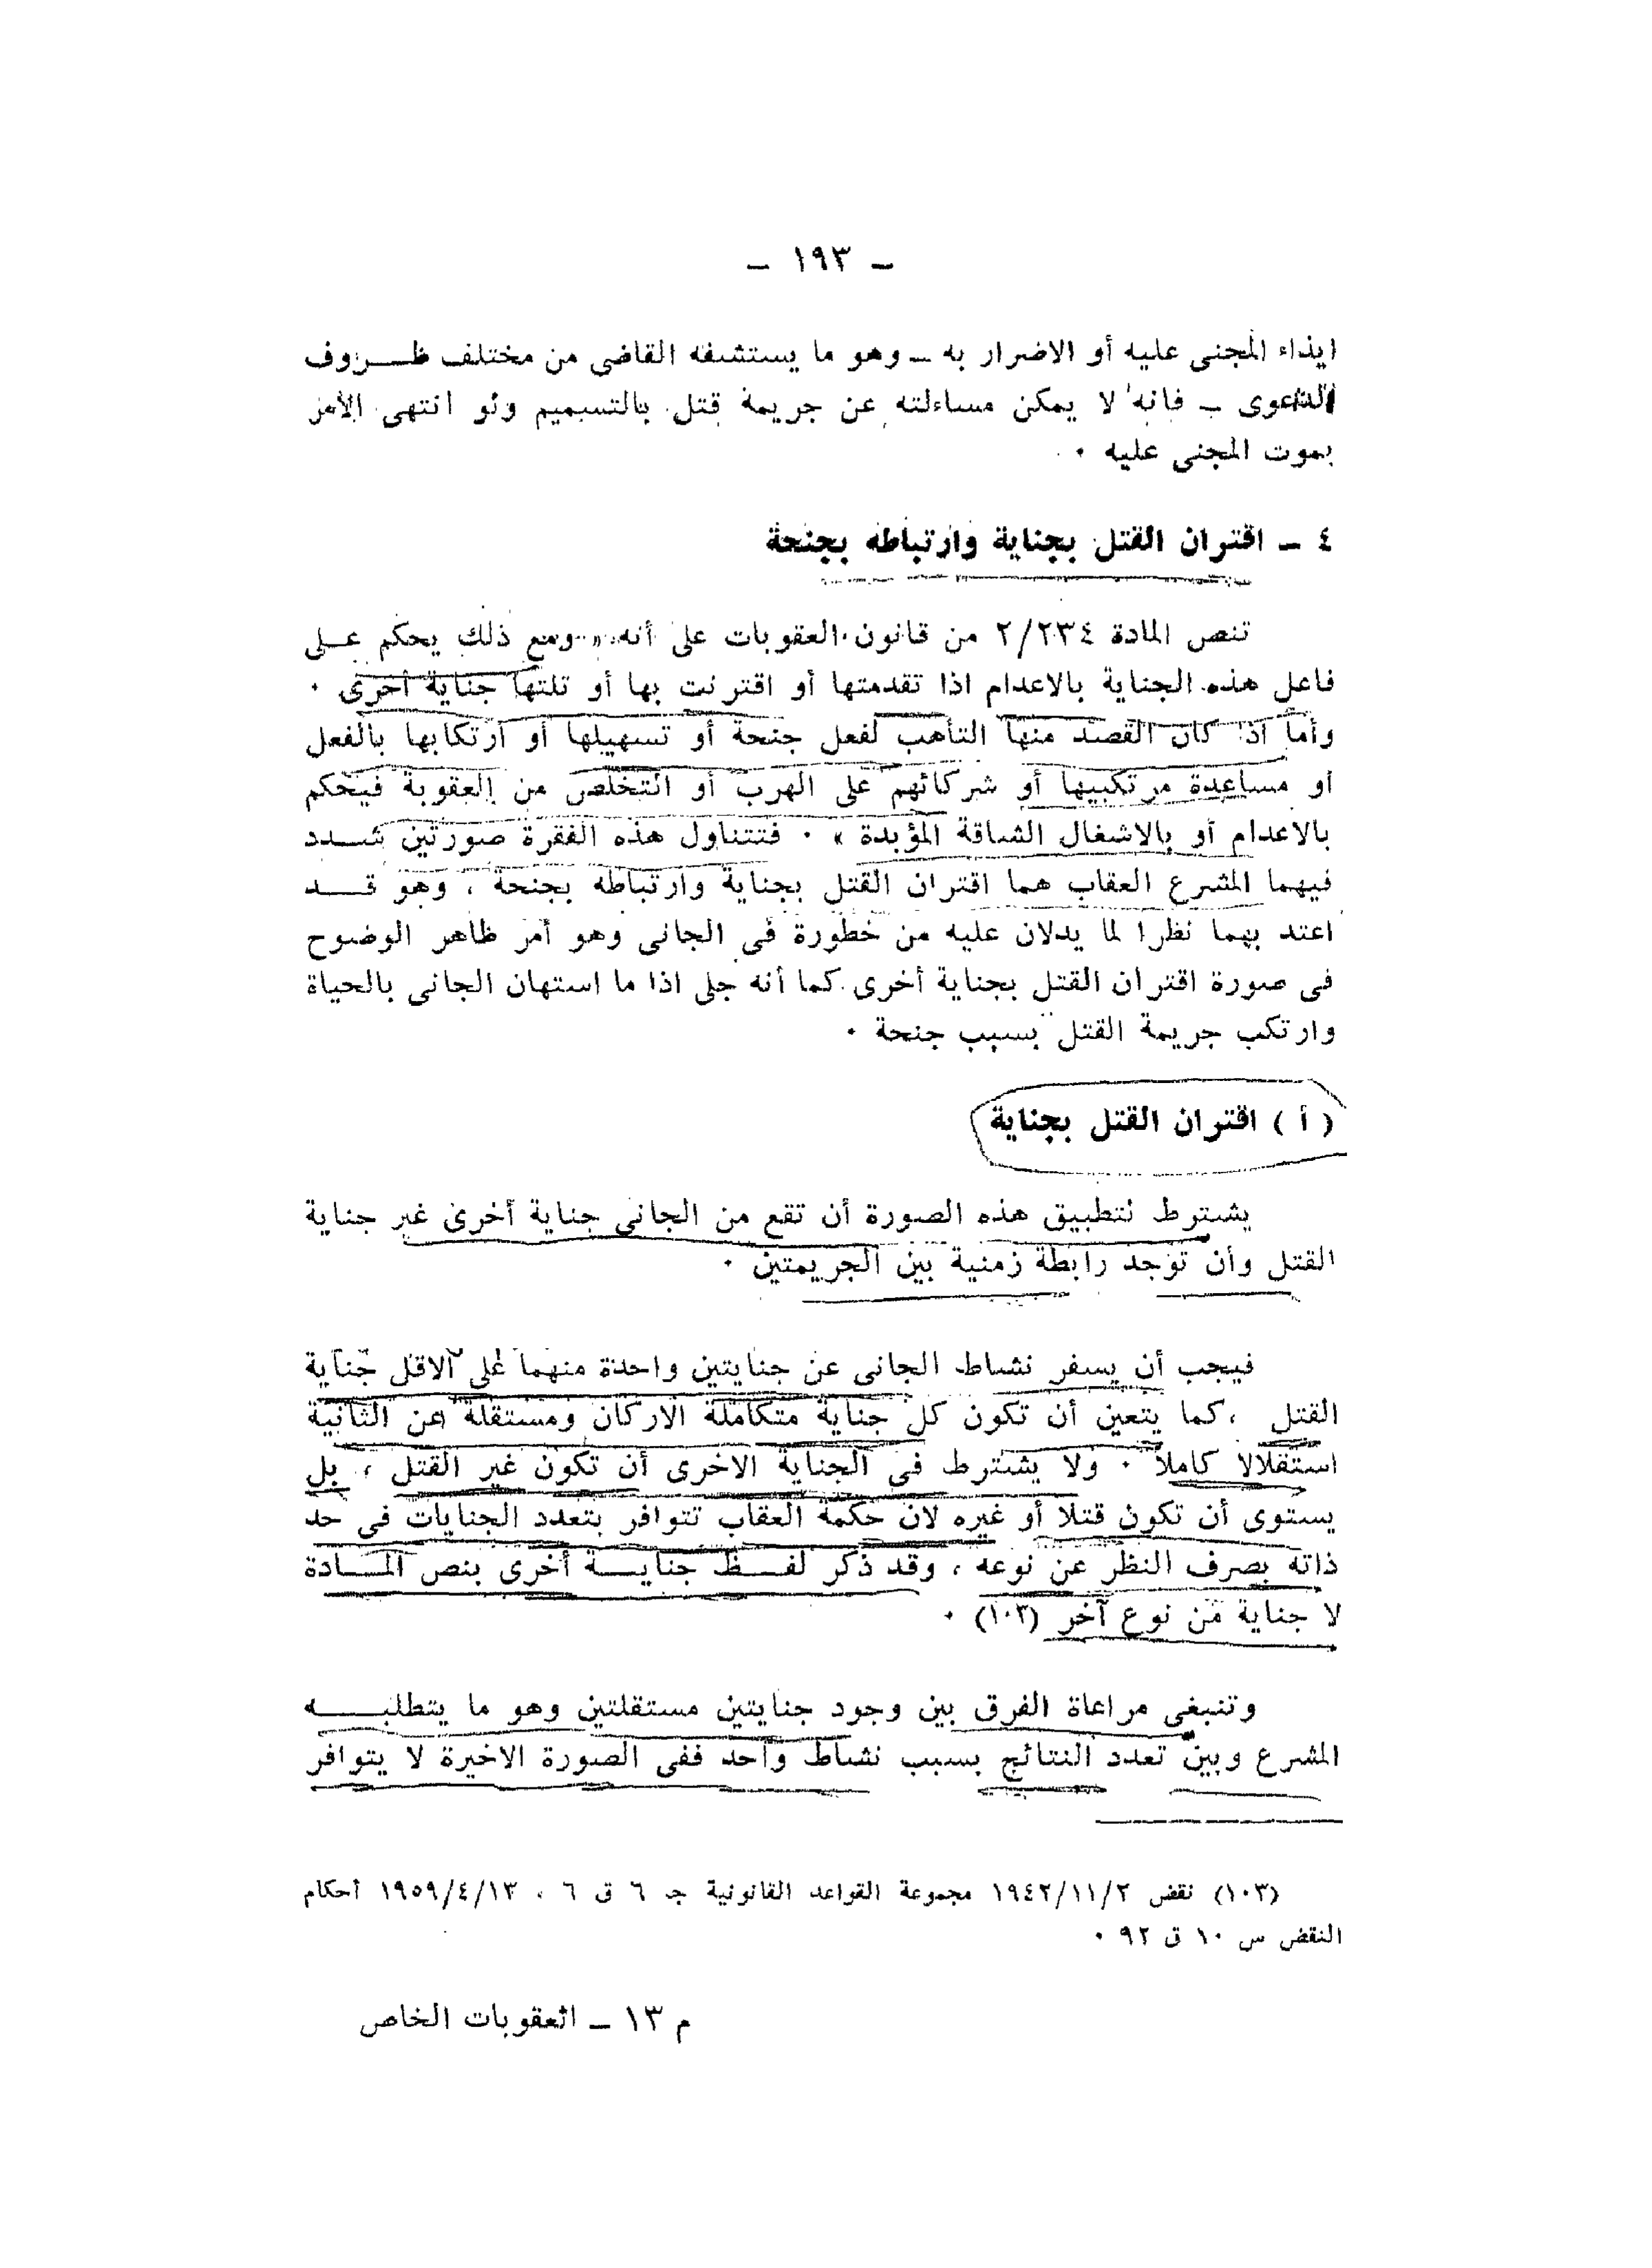 — ١٩٣ —
ايذاء المجنى عليه أو الاضرار به — وهو ما يستشفه القاضى من مختلف ظـــروف
الدعوى — فانه لا يمكن مساءلته عن جريمة قتل بالتسميم ولو انتهى الأمر
بموت المجنى عليه ٠
٤ — اقتران القتل بجناية وارتباطه بجنحة
تنص المادة ٢/٢٣٤ من قانون العقوبات على أنه « ومع ذلك يحكم عـلى
فاعل هذه الجناية بالاعدام اذا تقدمتها أو اقترنت بها أو تلتها جناية أخرى ٠
وأما اذا كان القصد منها التأهب لفعل جنحة أو تسهيلها أو ارتكابها بالفعل
أو مساعدة مرتكبيها أو شركائهم على الهرب أو التخلص من العقوبة فيحكم
بالاعدام أو بالاشغال الشاقة المؤبدة » ٠ فتتناول هذه الفقرة صورتين شـــدد
فيهما المشرع العقاب هما اقتران القتل بجناية وارتباطه بجنحة ، وهو قـــد
اعتد بهما نظرا لما يدلان عليه من خطورة فى الجانى وهو أمر ظاهر الوضوح
فى صورة اقتران القتل بجناية أخرى كما أنه جلى اذا ما استهان الجانى بالحياة
وارتكب جريمة القتل بسبب جنحة ٠
( أ ) اقتران القتل بجناية
يشترط لتطبيق هذه الصورة أن تقع من الجانى جناية أخرى غير جناية
القتل وأن توجد رابطة زمنية بين الجريمتين ٠
فيجب أن يسفر نشاط الجانى عن جنايتين واحدة منهما على الاقل جناية
القتل ، كما يتعين أن تكون كل جناية متكاملة الاركان ومستقلة عن الثانية
استقلالا كاملا ٠ ولا يشترط فى الجناية الاخرى أن تكون غير القتل ، بل
يستوى أن تكون قتلا أو غيره لان حكمة العقاب تتوافر بتعدد الجنايات فى حد
ذاته بصرف النظر عن نوعه ، وقد ذكر لفــظ جنايـــة أخرى بنص المـــادة
لا جناية من نوع آخر (١٠٣) ٠
وتنبغى مراعاة الفرق بين وجود جنايتين مستقلتين وهو ما يتطلبـــــه
المشرع وبين تعدد النتائج بسبب نشاط واحد ففى الصورة الاخيرة لا يتوافر
(١٠٣) نقض ١٩٤٢/١١/٢ مجموعة القواعد القانونية جـ ٦ ق ٦ ، ١٩٥٩/٤/١٣ أحكام
النقض س ١٠ ق ٩٢ ٠
م ١٣ — العقوبات الخاص